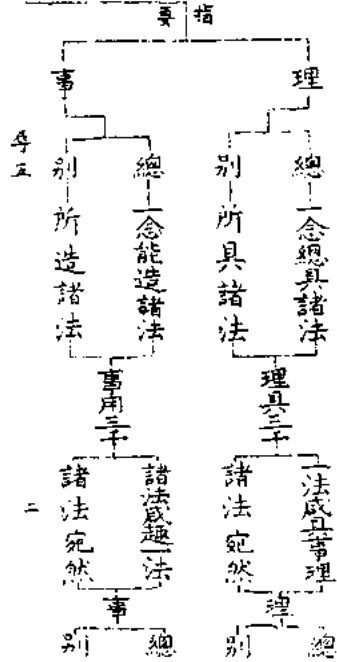 指要
理
總
一念總具諸法
別
所具諸法
理具三千
一法咸具事理
諸法宛然
理
總
別
事
總
一念能造諸法
別
所造諸法
事用三千
諸法咸趣一法
諸法宛然
事
總
別
二